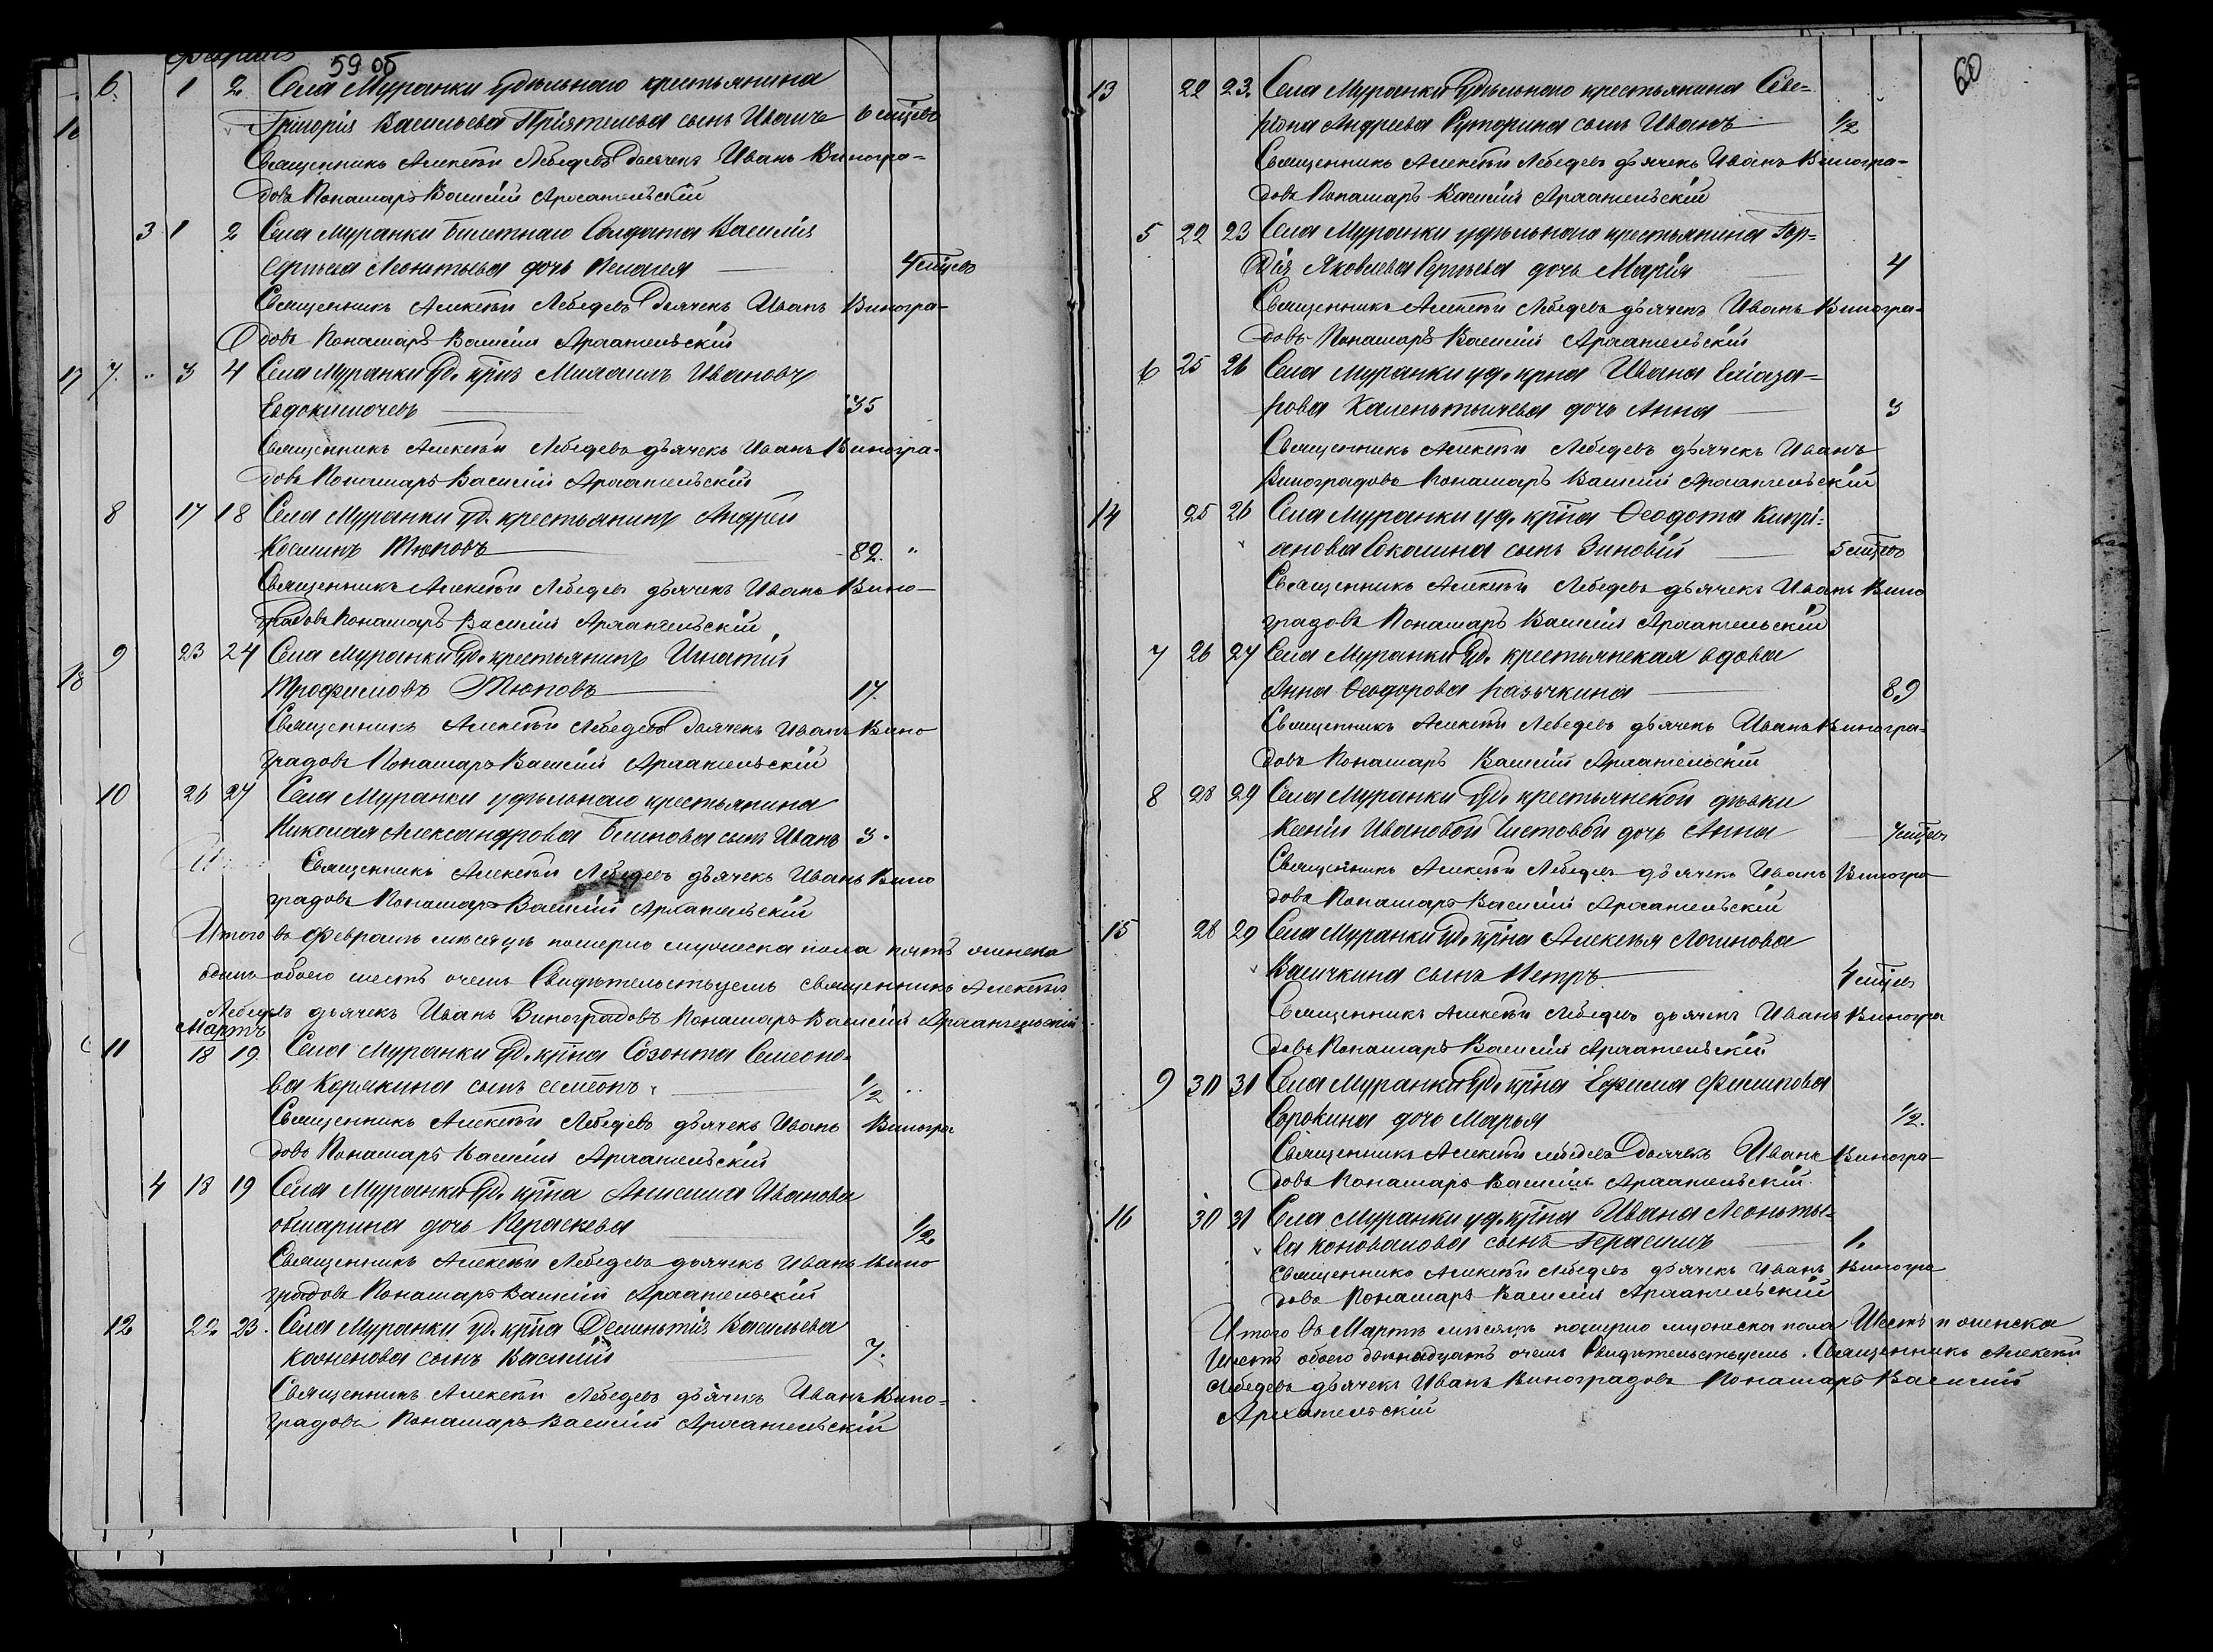 59 об
6. 1 2 Села Муранки Удѣльнаго крестьянина
Григорія Васильева Пріятелева сынъ Иванъ 6 мѣцевъ
Священникъ Алексѣй Лебедевъ Дьячекъ Иванъ Виногра-
довъ Пономарь Василій Архангельскій
3 1 2 Села Муранки Билетнаго Солдата Василія
Сергѣева Леонтьева дочь Пелагея 4 мѣцевъ
Священникъ Алексѣй Лебедевъ Дьячекъ Иванъ Виногра-
довъ Пономарь Василій Архангельскій
17 7. " 3 4 Села Муранки Уд. крнъ Михаилъ Ивановъ
Евдокимочевъ 35
Священникъ Алексѣй Лебедевъ дьячекъ Иванъ Виногра-
довъ Пономарь Василій Архангельскій
8 17 18 Села Муранки Уд. крестьянинъ Андрей
Косминъ Тюповъ 82. "
Священникъ Алексѣй Лебедевъ дьячекъ Иванъ Вино-
градовъ Пономарь Василій Архангельскій
9 23 24 Села Муранки Уд. крестьянинъ Игнатій
18
Трофимовъ Тюповъ 17.
Священникъ Алексѣй Лебедевъ Дьячекъ Иванъ Вино
градовъ Пономарь Василій Архангельскій
10 26 27 Села Муранки удѣльнаго крестьянина
Николая Александрова Блинова сынъ Иванъ 3.
Священникъ Алексѣй Лебедевъ дьячекъ Иванъ Вино
градовъ Пономарь Василій Архангельскій
Итого въ Февралѣ мѣсяцѣ померло мужеска пола пять женска
одна обоего шесть о чемъ Свидѣтельствуемъ священникъ Алексѣй
Лебедевъ дьячекъ Иванъ Виноградовъ Пономарь Василій Архангельскій
Мартъ
11 18 19. Села Муранки Уд. крна Созонта Семено-
ва Корякина сынъ Семенъ 1/2 "
Священникъ Алексѣй Лебедевъ дьячекъ Иванъ Виногра
довъ Пономарь Василій Архангельскій
4 18 19 Села Муранки Уд. крна Анисима Иванова
Овчарина дочь Параскева 1/2
Священникъ Алексѣй Лебедевъ дьячекъ Иванъ Вино
градовъ Пономарь Василій Архангельскій
12 22. 23. Села Муранки Уд. крна Дементія Васильева
сынъ Василій 7.
Священникъ Алексѣй Лебедевъ дьячекъ Иванъ Вино-
градовъ Пономарь Василій Архангельскій
60
13 22 23. Села Муранки Удѣльнаго крестьянина Саве-
Андреева сынъ Иванъ 1/2
Священникъ Алексѣй Лебедевъ дьячекъ Иванъ Виногра-
довъ Пономарь Василій Архангельскій
5 22 23 Села Муранки удѣльнаго крестьянина Гор-
дія Яковлева Сергѣева дочь Марія 4
Священникъ Алексѣй Лебедевъ дьячекъ Иванъ Виногра-
довъ Пономарь Василій Архангельскій
6 25 26 Села Муранки уд. крна Ивана Еліаза-
рова дочь Анна 3
Священникъ Алексѣй Лебедевъ дьячекъ Иванъ
Виноградовъ Пономарь Василій Архангельскій
14 25 26 Села Муранки уд. крна Ѳеодота Кипрі-
анова Соколина сынъ Зиновій 5 мѣцевъ
Священникъ Алексѣй Лебедевъ дьячекъ Иванъ Вино
градовъ Пономарь Василій Архангельскій
7 26 27 Села Муранки Уд. крестьянская вдова
Анна Ѳеодорова 89
Священникъ Алексѣй Лебедевъ дьячекъ Иванъ Виногра-
довъ Пономарь Василій Архангельскій
8 28 29 Села Муранки Уд. крестьянской дѣвки
Ксеніи Ивановой Чистовой дочь Анна 7 мѣцевъ
Священникъ Алексѣй Лебедевъ дьячекъ Иванъ Виногра
довъ Пономарь Василій Архангельскій
15 28 29 Села Муранки Уд. крна Алексѣя Логинова
Васичкина сынъ Петръ 4 мѣцевъ
Священникъ Алексѣй Лебедевъ дьячекъ Иванъ Виногра
довъ Пономарь Василій Архангельскій
9 30 31 Села Муранки Уд. крна Ефима Филипова
Сорокина дочь Марья 1/2.
Священникъ Алексѣй Лебедевъ Дьячекъ Иванъ Виногра-
довъ Пономарь Василій Архангельскій
16 30 31 Села Муранки уд. крна Ивана Леонтье-
ва Коновалова сынъ Герасимъ 1.
Священникъ Алексѣй Лебедевъ дьячекъ Иванъ Виногра
довъ Пономарь Василій Архангельскій
Итого въ Мартѣ мѣсяцѣ померло мужеска пола Шесть и женска
Шесть обоего двенадцать о чемъ Свидѣтельствуемъ. Священникъ Алексѣй
Лебедевъ дьячекъ Иванъ Виноградовъ Пономарь Василій
Архангельскій